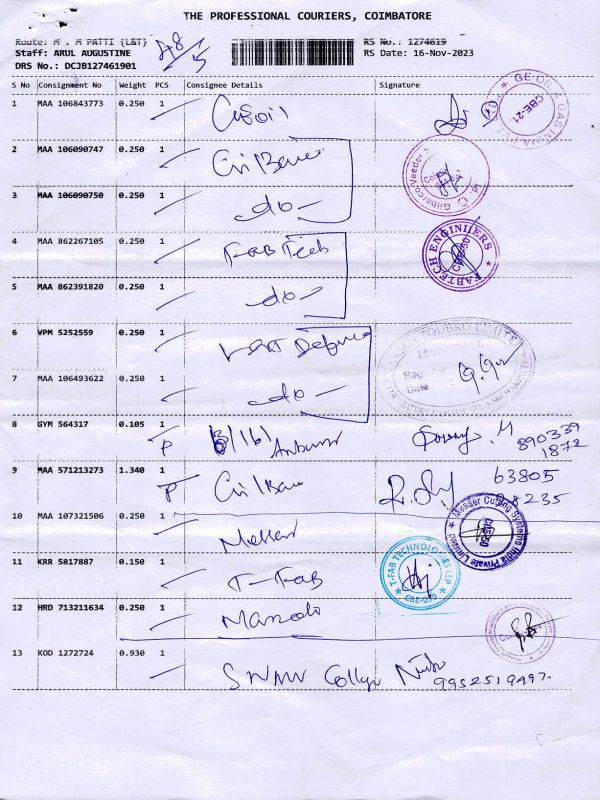 THE PROFESSIONAL COURIERS, COIMBATORE
Route: M . M PATTI {L&T}
Staff: ARUL AUGUSTINE
DRS No.: DCJB127461901
48/5
RS No.: 1274619
RS Date: 16-Nov-2023
S No Consignment No Weight PCS Consignee Details Signature
1 MAA 106843773 0.250 1
GE OIL & GAS INDIA
CBE-21
2 MAA 106090747 0.250 1
Gilbarco Veeder
3 MAA 106090750 0.250 1 do
4 MAA 862267105 0.250 1 T-Fab Tech
FABTECH ENGINEERS
5 MAA 862391820 0.250 1 do
6 VPM 5252559 0.250 1 L&T Defence
TOUBRO LIMITED
Date
7 MAA 106493622 0.250 1 do
8 GYM 564317 0.105 1 P M 890339
1872
9 MAA 571213273 1.340 1 P 63805
10 MAA 107321506 0.250 1
Messer Cutting Systems India Private Limited
11 KRR 5817887 0.150 1 T-Fab
T-FAB TECHNOLOGIES LLP
12 HRD 713211634 0.250 1
13 KOD 1272724 0.930 1 SNMV College 9952519497